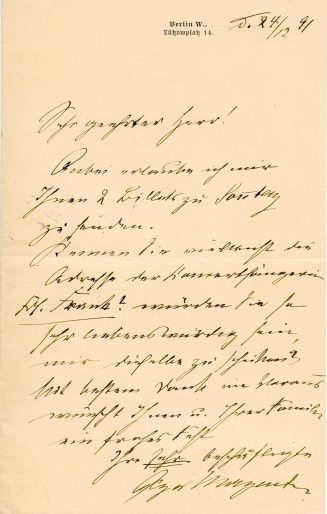 Berlin W.,
Lützowplatz 14.
d. 24/12 91
Sehr geehrter Herr!
Anbei erlaube ich mir
Ihnen 2 Billets zu Sonntag
zu senden.
Kennen Sie vielleicht die
Adresse der Konzertsängerin
Frl. Frank? würden Sie so
sehr liebenswürdig sein,
mir dieselbe zu schicken?
Mit bestem Dank im Voraus
wünscht Ihnen u. Ihrer Familie
ein frohes Fest
Ihre sehr beschäftigte